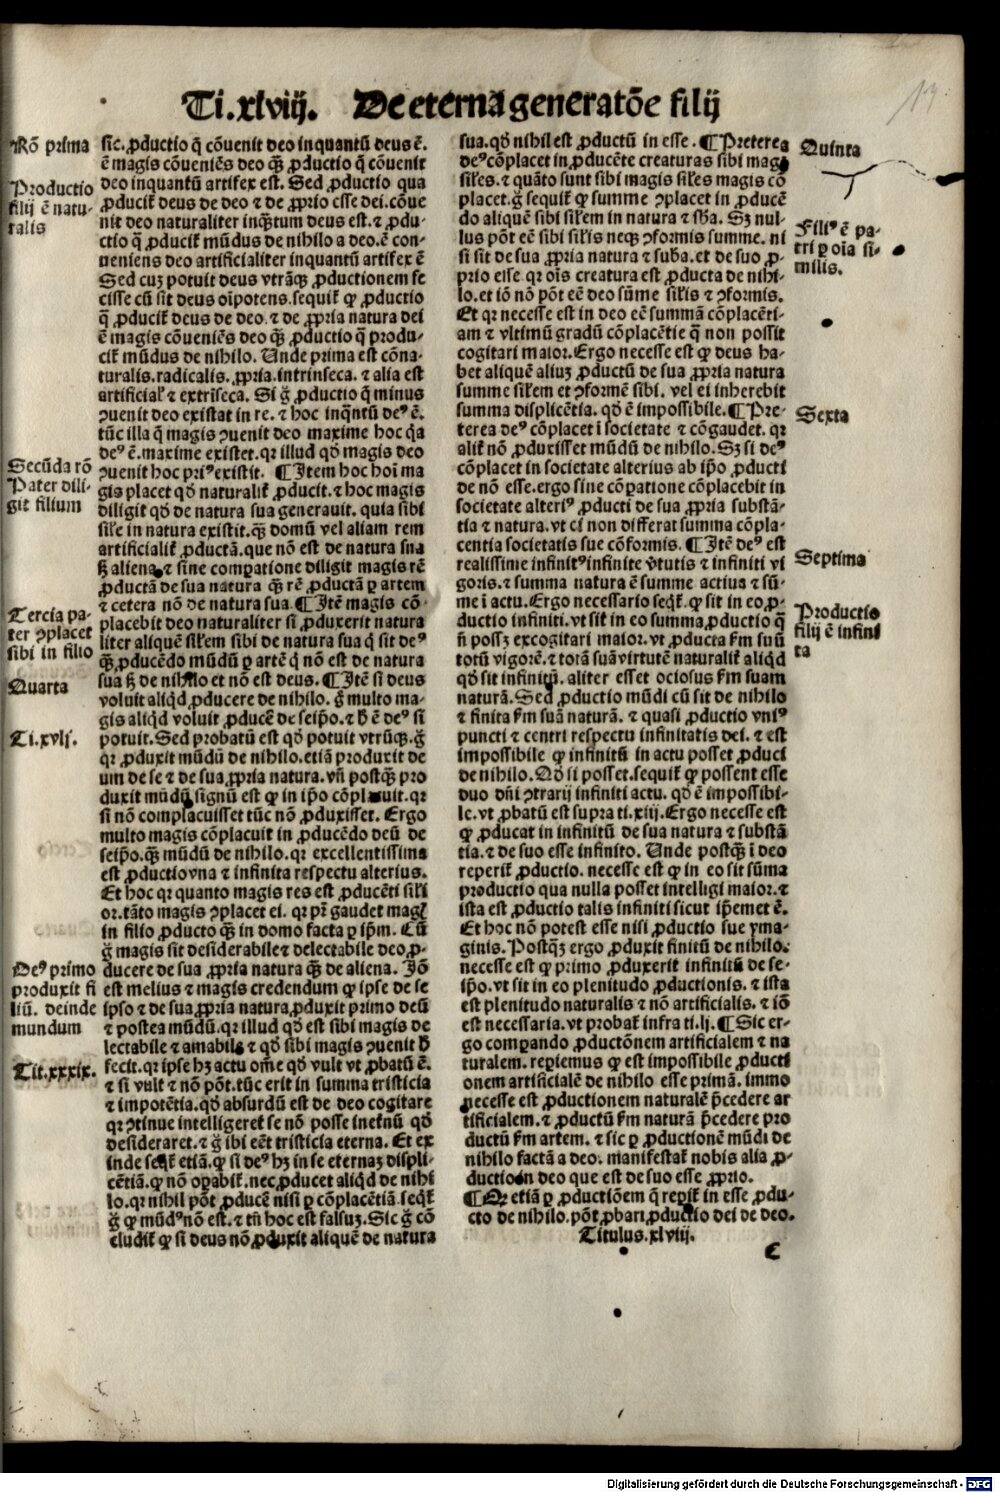 Ti.xlviij. De eterna generatõe filij
Rõ prima
Productio
filij ẽ natu-
ralis
Secũda rõ
Pater dili-
git filium
Tercia pa-
ter ꝯplacet
sibi in filio
Quarta
Ti.xvlj.
Deꝰ primo
produxit fi
liũ. deinde
mundum
Tit.xxxix.
sic. ꝓductio q̃ cõuenit deo inquantũ deus ẽ.
ẽ magis cõueniẽs deo qȝ̃ ꝓductio q̃ cõuenit
deo inquantũ artifex est. Sed ꝓductio qua
ꝓducit᷑ deus de deo ⁊ de ꝓprio esse dei.cõue
nit deo naturaliter inqȝ̃tum deus est.⁊ ꝓdu-
ctio q̃ ꝓducit᷑ mũdus de nihilo a deo.ẽ con-
ueniens deo artificialiter inquantũ artifex ẽ
Sed cuȝ potuit deus vtrãqȝ ꝓductionem fe
cisse cũ sit deus oĩpotens.sequit᷑ ꝙ ꝓductio
q̃ ꝓducit᷑ deus de deo.⁊ de ꝓpria natura dei
ẽ magis cõueniẽs deo qȝ̃ ꝓductio q̃ produ-
cit᷑ mũdus de nihilo. Unde prima est cõna-
turalis.radicalis. ꝓpria.intrinseca. ⁊ alia est
artificial᷑ ⁊ extrĩseca. Si g̃ ꝓductio q̃ minus
ꝯuenit deo existat in re. ⁊ hoc inqȝ̃tũ deꝰ ẽ.
tũc illa q̃ magis ꝯuenit deo maxime hoc q̃a
deꝰ ẽ.maxime existet.qr illud qð magis deo
ꝯuenit hoc priꝰ existit. ¶Item hoc hoĩ ma
gis placet qð naturalit᷑ ꝓducit.⁊ hoc magis
diligit qð de natura sua generauit. quia sibi
sil᷑e in natura existit.qȝ̃ domũ vel aliam rem
artificialit᷑ ꝓductã.que nõ est de natura sua
ẜ aliena.⁊ sine comꝑatione diligit magis rẽ
ꝓductã de sua natura qȝ̃ rẽ ꝓductã ꝑ artem
⁊ cetera nõ de natura sua.¶Itẽ magis cõ-
placebit deo naturaliter si ꝓduxerit natura
liter aliquẽ sil᷑em sibi de natura sua q̃ sit deꝰ
qȝ̃ ꝓducẽdo mũdũ ꝑ artẽ q̃ nõ est de natura
sua ẜ de nihilo et nõ est deus. ¶Itẽ si deus
voluit aliqð ꝓducere de nihilo. g̃ multo ma-
gis aliqð voluit ꝓducẽ de seip̃o.⁊ ħ ẽ deꝰ si
potuit.Sed probatũ est qð potuit vtrũqȝ.g̃
qr ꝓduxit mũdũ de nihilo.etiã produxit de
um de se ⁊ de sua ꝓpria natura. vñ postqȝ̃ pro
duxit mũdũ signũ est ꝙ in ip̃o cõplacuit.qr
si nõ complacuisset tũc nõ ꝓduxisset. Ergo
multo magis cõplacuit in ꝓducẽdo deũ de
seip̃o.qȝ̃ mũdũ de nihilo.qr excellentissima
est ꝓductio vna ⁊ infinita respectu alterius.
Et hoc qr quanto magis res est ꝓducẽti sil᷑i
or.tãto magis ꝯplacet ei. qr pr̃ gaudet magꝭ
in filio ꝓducto qȝ̃ in domo facta ꝑ ip̃m. Cũ
g̃ magis sit desiderabile ⁊ delectabile deo ꝓ-
ducere de sua ꝓpria natura qȝ̃ de aliena. Iõ
est melius ⁊ magis credendum ꝙ ipse de se
ipso ⁊ de sua ꝓpria natura ꝓduxit primo deũ
⁊ postea mũdũ.qr illud qð est sibi magis de
lectabile ⁊ amabile ⁊ qð sibi magis ꝯuenit ħ
fecit.qr ipse hȝ actu om̃e qð vult vt ꝓbatũ ẽ.
⁊ si vult ⁊ nõ põt.tũc erit in summa tristicia
⁊ impotẽtia.qð absurdũ est de deo cogitare
qr ꝯtinue intelligeret se nõ posse inet᷑nũ qð
desideraret.⁊ g̃ ibi eẽt tristicia eterna. Et ex
inde seqt᷑ etiã.ꝙ si deꝰ hȝ in se eternaȝ displi-
cẽtiã.ꝙ nõ oꝑabit᷑.nec ꝓducet aliqð de nihi
lo.qr nihil põt ꝓducẽ nisi ꝑ cõplacẽtiã.seqt᷑
g̃ ꝙ mũdꝰ nõ est.⁊ tñ hoc est falsuȝ.Sic g̃ cõ
cludit᷑ ꝙ si deus nõ ꝓduxit aliquẽ de natura
sua.qð nihil est ꝓductũ in esse.¶Preterea
deꝰ cõplacet in ꝓducẽte creaturas sibi magꝭ
sil᷑es.⁊ quãto sunt sibi magis sil᷑es magis cõ
placet.g̃ sequit᷑ ꝙ summe ꝯplacet in ꝓducẽ
do aliquẽ sibi sil᷑em in natura ⁊ sb̃a. Sȝ nul-
lus põt eẽ sibi sil᷑is neqȝ ꝯformis summe. ni
si sit de sua ꝓpria natura ⁊ suba.et de suo ꝓ-
prio esse qr oĩs creatura est ꝓducta de nihi-
lo.et iõ nõ põt eẽ deo sũme sil᷑is ⁊ ꝯformis.
Et qr necesse est in deo eẽ summã cõplacẽti-
am ⁊ vltimũ gradũ cõplacẽtie q̃ non possit
cogitari maior.Ergo necesse est ꝙ deus ha-
bet aliquẽ aliuȝ ꝓductũ de sua ꝓpria natura
summe sil᷑em ⁊ ꝯformẽ sibi. vel ei inherebit
summa displicẽtia. qð ẽ impossibile.¶Pre-
terea deꝰ cõplacet ĩ societate ⁊ cõgaudet. qr
alit᷑ nõ ꝓduxisset mũdũ de nihilo. Sȝ si deꝰ
cõplacet in societate alterius ab ip̃o ꝓducti
de nõ esse.ergo sine cõꝑatione cõplacebit in
societate alteriꝰ ꝓducti de sua ꝓpria substã-
tia ⁊ natura.vt ei non differat summa cõpla-
centia societatis sue cõformis.¶Itẽ deꝰ est
realissime infinitꝰ infinite v̾tutis ⁊ infiniti vi
goris.⁊ summa natura ẽ summe actius ⁊ sũ-
me ĩ actu.Ergo necessario seqt᷑ ꝙ sit in eo ꝓ-
ductio infiniti.vt sit in eo summa ꝓductio q̃
ñ possȝ excogitari maior.vt ꝓducta ẜm suũ
totũ vigorẽ.⁊ totã suã virtutẽ naturalit᷑ aliqð
qð sit infinitũ. aliter esset ociosus ẜm suam
naturã.Sed ꝓductio mũdi cũ sit de nihilo
⁊ finita ẜm suã naturã. ⁊ quasi ꝓductio vniꝰ
puncti ⁊ centri respectu infinitatis dei. ⁊ est
impossibile ꝙ infinitũ in actu posset ꝓduci
de nihilo.Qð si posset.sequit᷑ ꝙ possent esse
duo dñi ꝯtrarij infiniti actu. qð ẽ impossibi-
le.vt ꝓbatũ est supra ti.xiij.Ergo necesse est
ꝙ ꝓducat in infinitũ de sua natura ⁊ substã
tia.⁊ de suo esse infinito. Unde postqȝ̃ ĩ deo
reperit᷑ ꝓductio. necesse est ꝙ in eo sit sũma
productio qua nulla posset intelligi maior.⁊
ista est ꝓductio talis infiniti sicut ip̃emet ẽ.
Et hoc nõ potest esse nisi ꝓductio sue yma-
ginis.Postqȝ̃ ergo ꝓduxit finitũ de nihilo.
necesse est ꝙ primo ꝓduxerit infinitũ de se-
ip̃o.vt sit in eo plenitudo ꝓductionis.⁊ ista
est plenitudo naturalis ⁊ nõ artificialis.⁊ iõ
est necessaria.vt probat᷑ infra ti.lj.¶Sic er-
go comꝑando ꝓductõnem artificialem ⁊ na
turalem. reꝑiemus ꝙ est impossibile ꝓducti
onem artificialẽ de nihilo esse primã. immo
necesse est ꝓductionem naturalẽ p̃cedere ar
tificialem.⁊ ꝓductũ ẜm naturã p̃cedere pro
ductũ ẜm artem. ⁊ sic ꝑ ꝓductionẽ mũdi de
nihilo factã a deo. manifestat᷑ nobis alia ꝓ-
ductio in deo que est de suo esse ꝓprio.
¶Qr etiã ꝑ ꝓductiõem q̃ reꝑit᷑ in esse ꝓdu-
cto de nihilo.põt ꝓbari ꝓductio dei de deo.
Titulus.xlviij.
c
Quinta
Filiꝰ ẽ pa-
tri ꝑ oĩa si-
milis.
Sexta
Septima
Productio
filij ẽ infini
ta